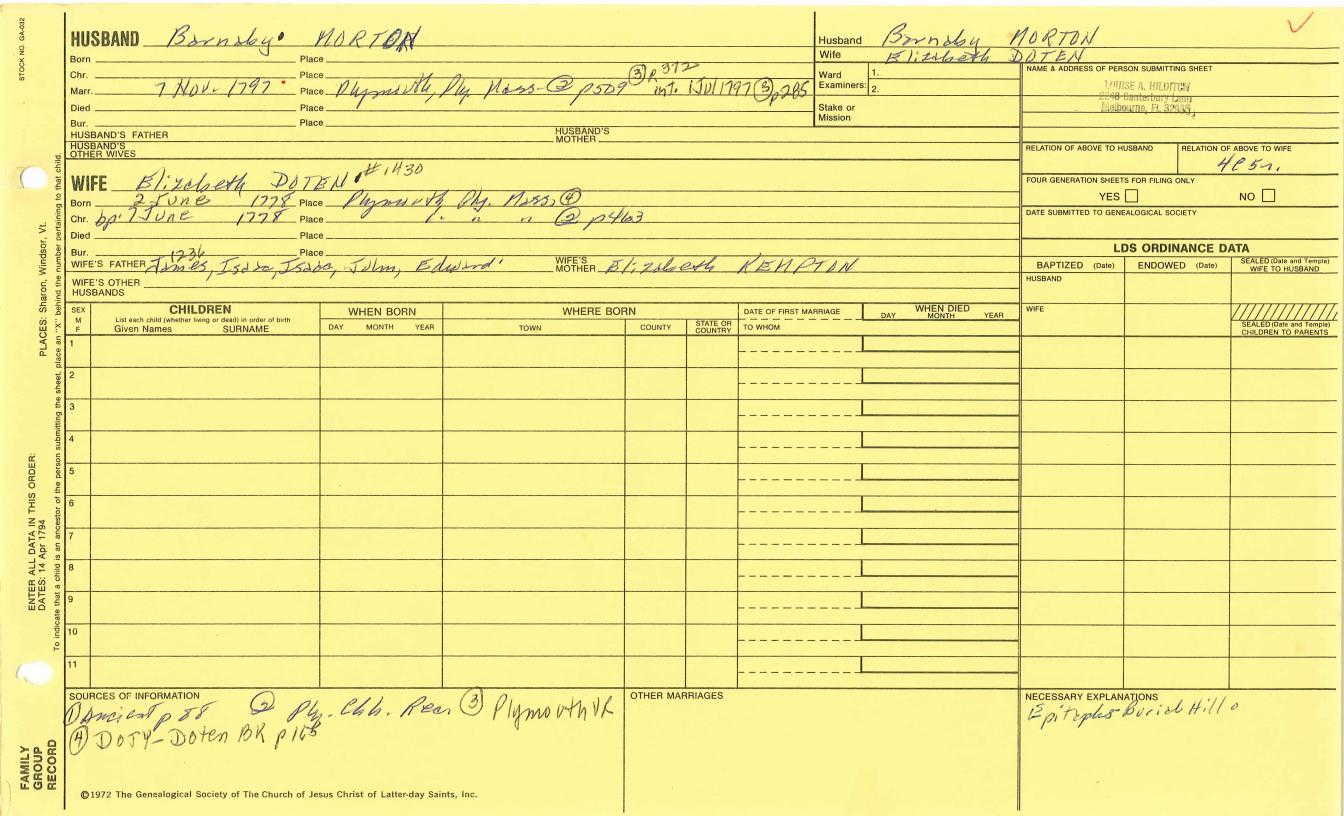 STOCK NO. GA-032
HUSBAND Barnaby MORTON
Born Place
Chr. Place
Marr. 7 Nov. 1797 Place Plymouth, Ply Mass - ② p509 ③ p372 int. 1 Jul 1797 ③ p285
Died Place
Bur. Place
HUSBAND'S FATHER HUSBAND'S MOTHER
HUSBAND'S OTHER WIVES
Husband Barnaby MORTON
Wife Elizabeth DOTEN
Ward Examiners: 1.
2.
Stake or Mission
NAME & ADDRESS OF PERSON SUBMITTING SHEET
LOUISE A. HILDITCH
2248 Canterbury Lane
Melbourne, Fl.
RELATION OF ABOVE TO HUSBAND RELATION OF ABOVE TO WIFE
4C5r.
FOUR GENERATION SHEETS FOR FILING ONLY
YES NO
DATE SUBMITTED TO GENEALOGICAL SOCIETY
WIFE Elizabeth DOTEN #1430
Born 2 June 1778 Place Plymouth Ply. Mass. ④
Chr. bp. 7 June 1778 Place " " " ② p463
Died Place
Bur. Place
1236
WIFE'S FATHER James, Isaac, Isaac, John, Edward WIFE'S MOTHER Elizabeth KEMPTON
WIFE'S OTHER HUSBANDS
LDS ORDINANCE DATA
BAPTIZED (Date) ENDOWED (Date) SEALED (Date and Temple) WIFE TO HUSBAND
HUSBAND
WIFE
SEALED (Date and Temple) CHILDREN TO PARENTS
SEX M F
CHILDREN
List each child (whether living or dead) in order of birth
Given Names SURNAME
WHEN BORN
DAY MONTH YEAR
WHERE BORN
TOWN COUNTY STATE OR COUNTRY
DATE OF FIRST MARRIAGE
TO WHOM
WHEN DIED
DAY MONTH YEAR
1
2
3
4
5
6
7
8
9
10
11
SOURCES OF INFORMATION
① Ancient p 88 ② Ply. Chh. Rec ③ Plymouth VR
④ DOTY-Doten BK p 165
OTHER MARRIAGES
NECESSARY EXPLANATIONS
Epitaphs Burial Hill o
©1972 The Genealogical Society of The Church of Jesus Christ of Latter-day Saints, Inc.
FAMILY GROUP RECORD
ENTER ALL DATA IN THIS ORDER:
DATES: 14 Apr 1794
PLACES: Sharon, Windsor, Vt.
To indicate that a child is an ancestor of the person submitting the sheet, place an "X" behind the number pertaining to that child.